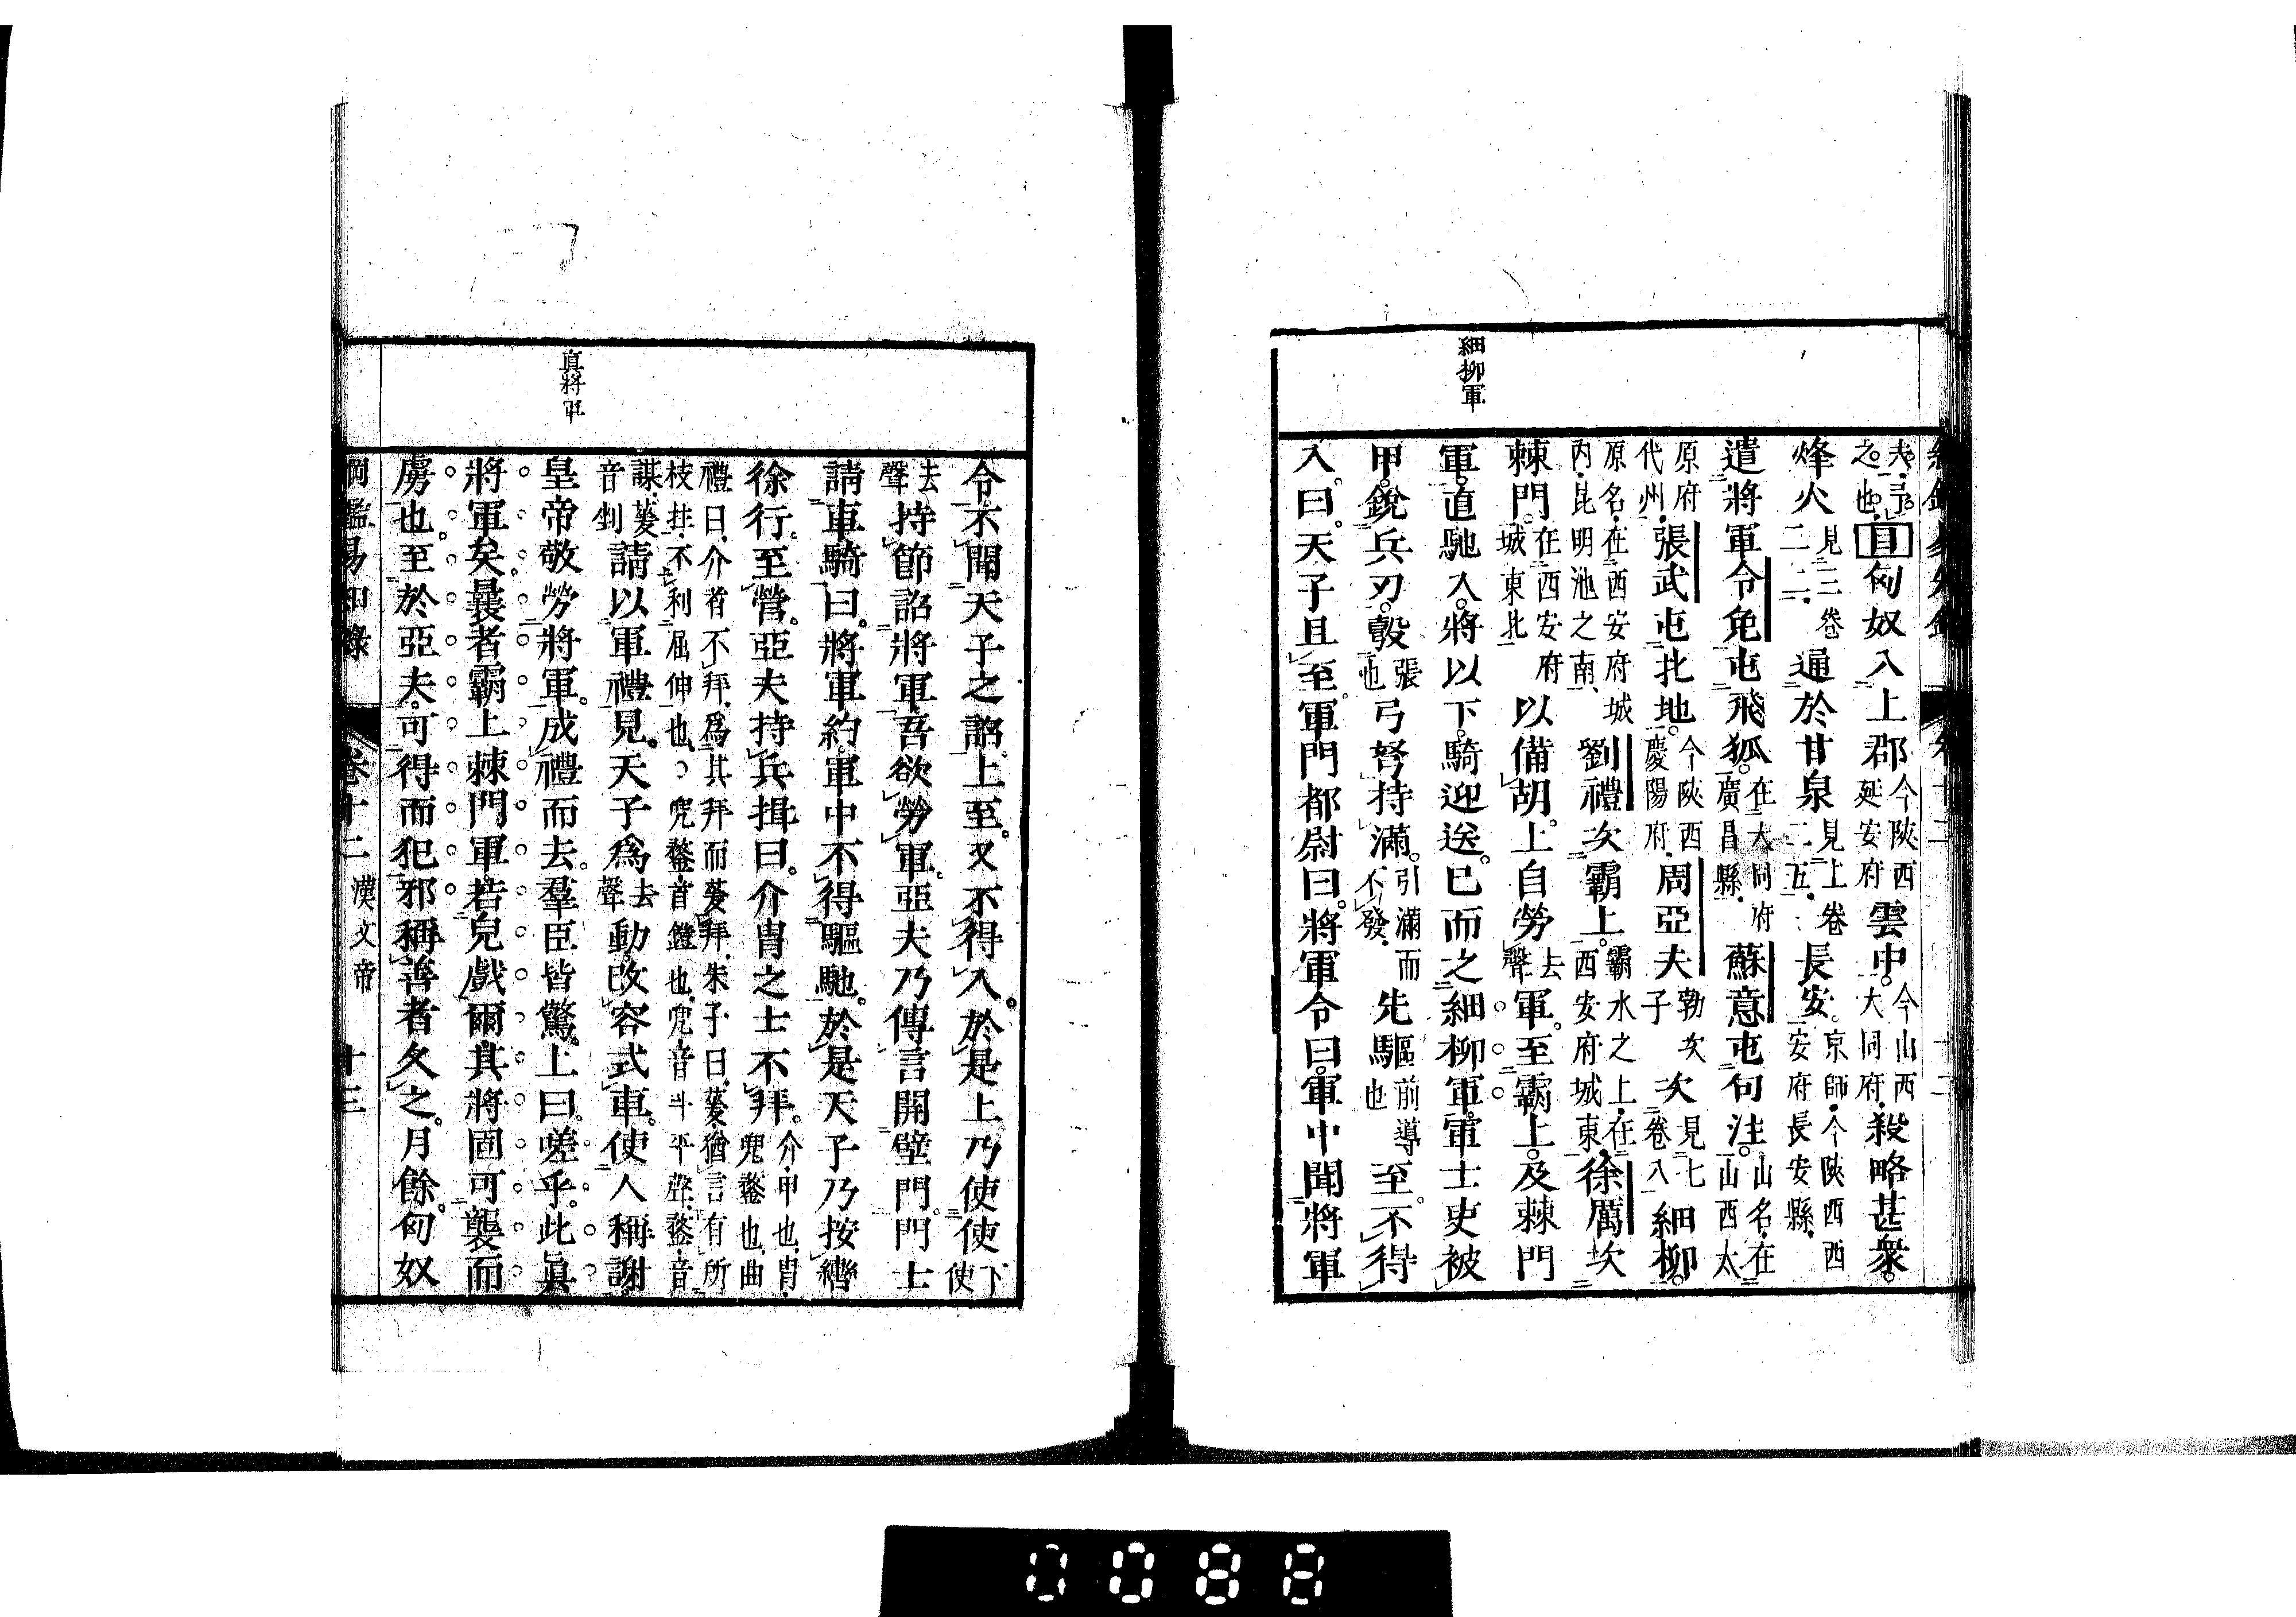 細柳軍
夫弓之也目匈奴入上郡今陝西延安府雲中今山西大同府殺略甚衆
烽火見三卷二二通於甘泉見上卷二五長安京師今陝西西安府長安縣
遣將軍令免屯飛狐在大同府廣昌縣蘇意屯句注山名在山西太
原府代州張武屯北地今陝西慶陽府周亞夫勃次子次見七卷八細柳
原名在西安府城內昆明池之南劉禮次霸上霸水之上在西安府城東徐厲次
棘門在西安府城東北以備胡上自勞去聲軍至霸上及棘門
軍直馳入將以下騎迎送已而之細柳軍軍士吏被
甲銳兵刃彀張也弓弩持滿引滿而不發先驅前導也至不得
入曰天子且至軍門都尉曰將軍令曰軍中聞將軍
眞將軍
令不聞天子之詔上至又不得入於是上乃使使下使
去聲持節詔將軍吾欲勞軍亞夫乃傳言開壁門門士
請車騎曰將軍約軍中不得驅馳於是天子乃按轡
徐行至營亞夫持兵揖曰介冑之士不拜介甲也冑兜鍪也曲
禮曰介者不拜爲其拜而蓌拜朱子曰蓌猶言有所枝拄不利屈伸也兜鍪首鎧也兜音斗平聲鍪音
謀蓌音剉請以軍禮見天子爲去聲動改容式車使人稱謝
皇帝敬勞將軍成禮而去羣臣皆驚上曰嗟乎此眞
將軍矣曩者霸上棘門軍若兒戲爾其將固可襲而
虜也至於亞夫可得而犯邪稱善者久之月餘匈奴
綱鑑易知錄 卷十二 漢文帝 十三
0088